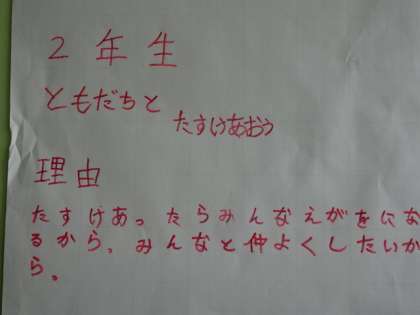 2年生
ともだちと
たすけあおう
理由
たすけあったらみんなえがをにな
るから、みんなと仲よくしたいか
ら。